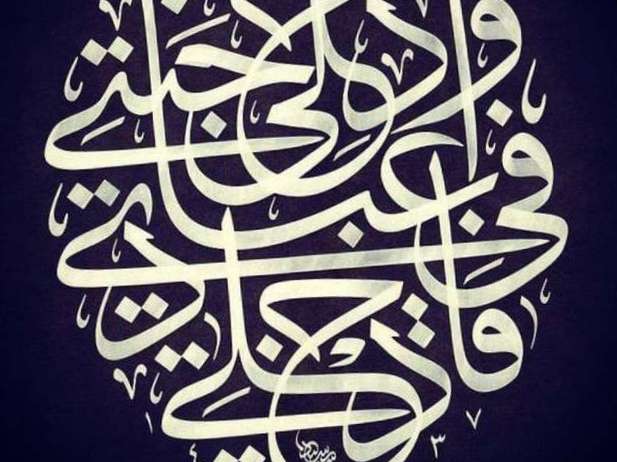 فادخلي
في عبادي
وادخلي جنتي
١٤٣٧